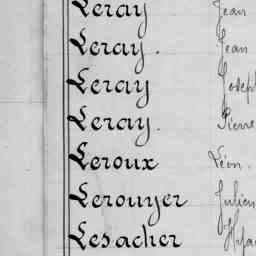 Leray Jean
Leray. Jean
Leray Joseph
Leray. Pierre
Leroux Léon.
Lerouyer Julien
Lesacher